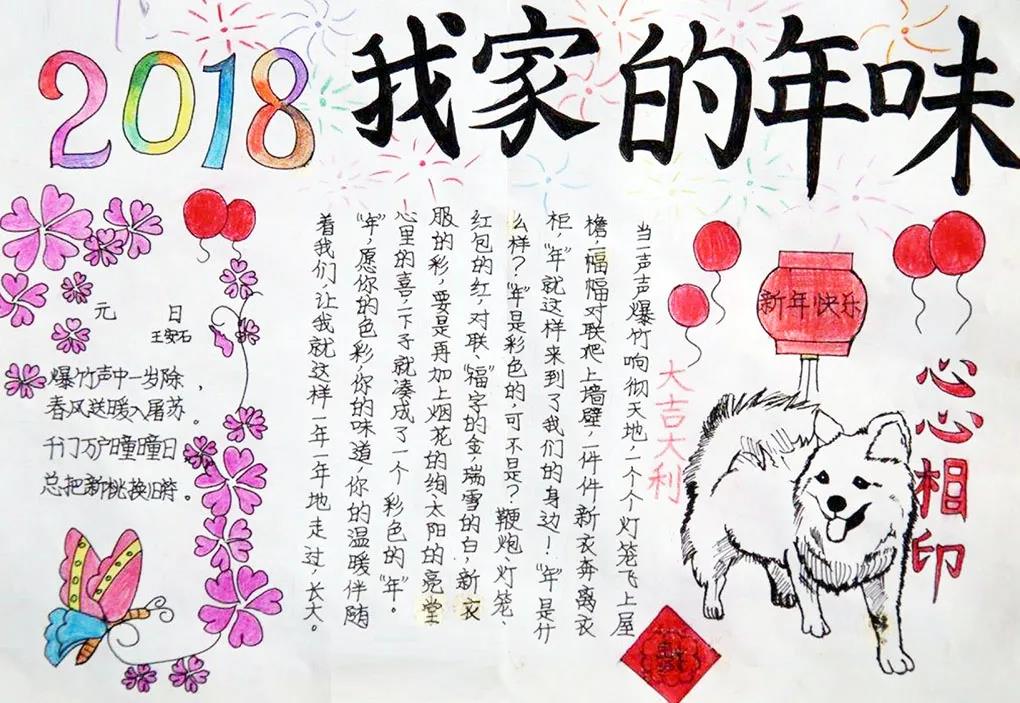 2018
我家的年味
元日
王安石
爆竹声中一岁除，
春风送暖入屠苏。
千门万户曈曈日
总把新桃换旧符。
当一声声爆竹响彻天地，一个个灯笼飞上屋
檐，一幅幅对联爬上墙壁，一件件新衣奔离衣
柜，“年”就这样来到了我们的身边！“年”是什
么样？“年”是彩色的，可不是？鞭炮、灯笼、
红包的红，对联、“福”字的金，瑞雪的白，新衣
服的彩，要是再加上烟花的绚，太阳的亮，堂
心里的喜，一下子就凑成了一个彩色的“年”。
“年”，愿你的色彩，你的味道，你的温暖伴随
着我们，让我就这样一年一年地走过，长大。
新年快乐
大吉大利
心心相印